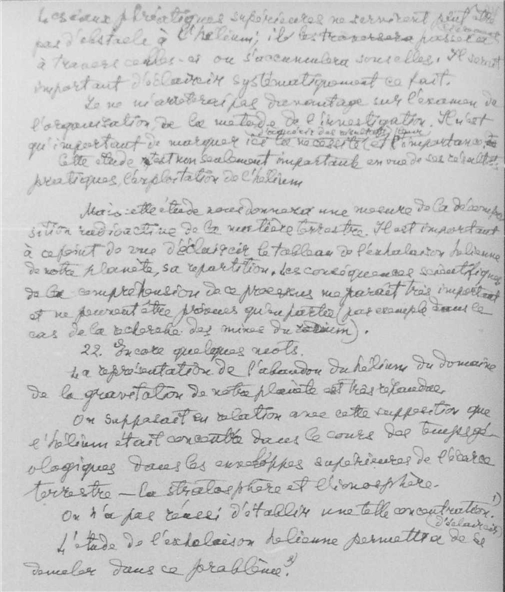 Les eaux phréatiques supérieures ne serviront peut être
pas d'obstacle à l'hélium; il les traversera passera
à travers celles-ci ou s'accumulera sous elles. Il serait
important d'éclaircir systématiquement ce fait.
Je ne m'arrêterai pas davantage sur l'examen de
l'organisation, de la méthode de l'investigation. Il n'est
qu'important de marquer ici la nécessité et l'importance
Cette étude n'est non seulement importante en vue de ses résultats
pratiques, l'exploitation de l'hélium
Mais cette étude nous donnera une mesure de la décompo-
sition radioactive de la matière terrestre. Il est important
à ce point de vue d'éclaircir le tableau de l'exhalaison hélienne
de notre planète, sa répartition. Les conséquences scientifiques
de la compréhension de ce processus me paraît très important
et ne peuvent être prévues qu'en partie (par exemple dans ce
cas de la recherche des mines du radium).
22. Encore quelques mots.
La représentation de l'abandon du hélium du domaine
de la gravitation de notre planète est très répandue.
On supposait en relation avec cette supposition que
l'hélium était concentré dans le cours des temps gé-
ologiques dans les enveloppes supérieures de l'écorce
terrestre — la stratosphère et l'ionosphère.
On n'a pas réussi d'établir une telle concentration. 1)
d'éclaircir
L'étude de l'exhalaison hélienne permettra de se
démeler dans ce problème. 2)